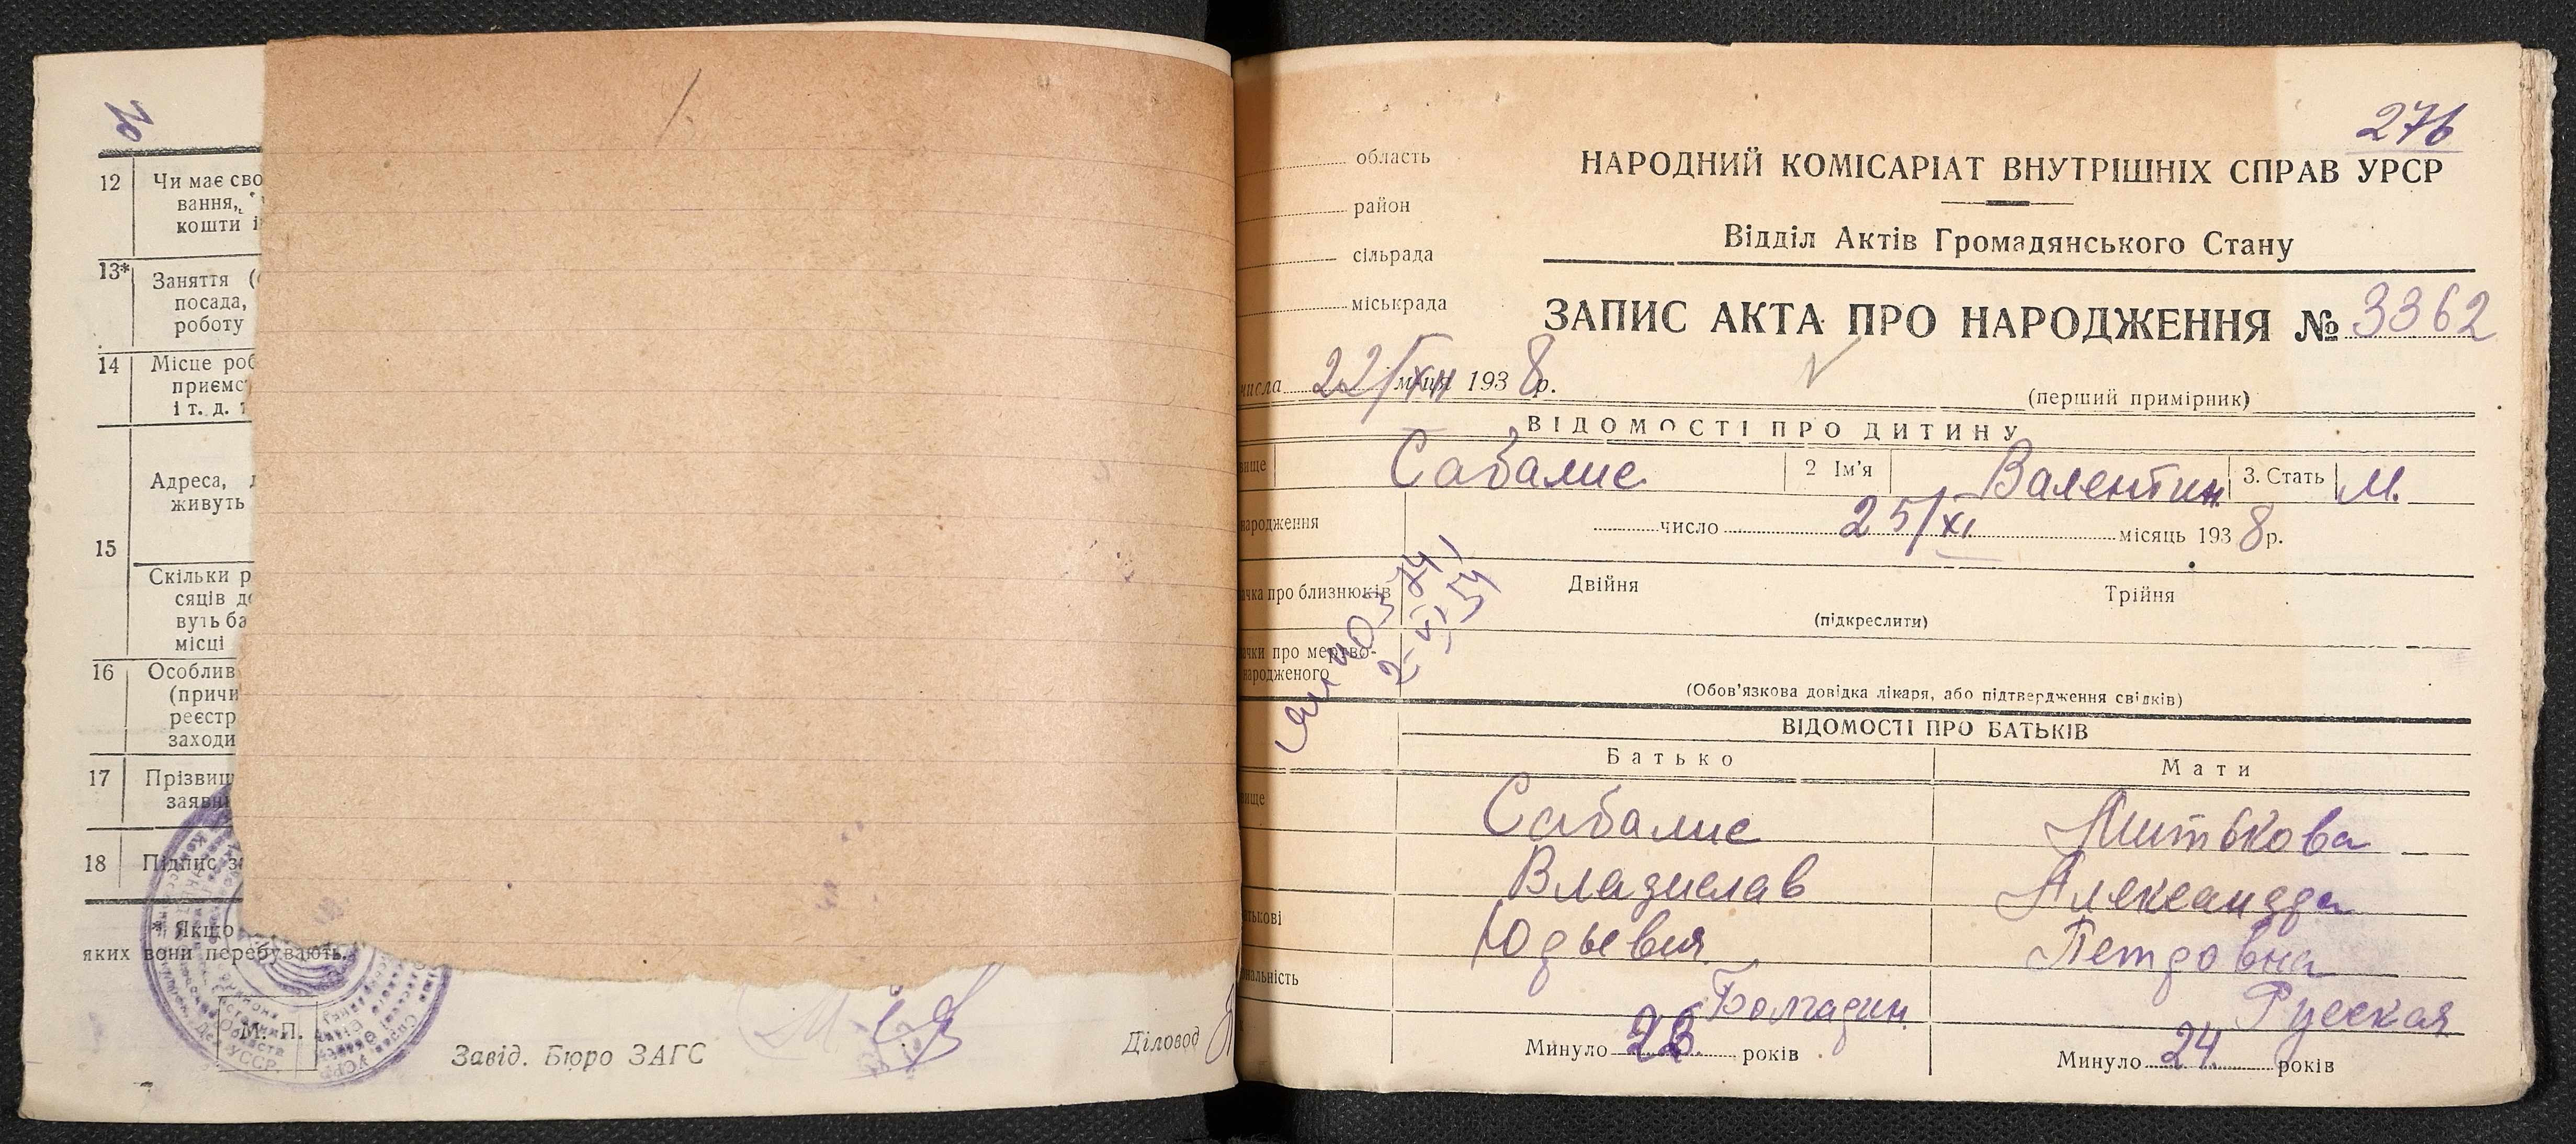 12 Чи має сво
вання,
кошти і
13* Заняття (
посада,
роботу
14 Місце роб
приємс
і т. д. т
Адреса,
живуть
15
Скільки р
сяців до
вуть ба
місці
16 Особлив
(причи
реєстр
заходи
17 Прізвищ
заявн
18 Підпис за
* Якщо
яких вони перебувають.
М. П.
Завід. Бюро ЗАГС
Діловод
276
область
район
сільрада
міськрада
НАРОДНИЙ КОМІСАРІАТ ВНУТРІШНІХ СПРАВ УРСР
Відділ Актів Громадянського Стану
ЗАПИС АКТА ПРО НАРОДЖЕННЯ № 3362
числа 22/XII м-ця 1938 р.
(перший примірник)
ВІДОМОСТІ ПРО ДИТИНУ
вище Сабалис 2 Ім'я Валентин 3. Стать М.
народження число 25/XI місяць 1938 р.
ачка про близнюків Двійня Трійня
(підкреслити)
ачки про мертво-
народженого
(Обов'язкова довідка лікаря, або підтвердження свідків)
ВІДОМОСТІ ПРО БАТЬКІВ
Батько Мати
вище Сабалис Митькова
Владислав Александра
атькові Юрьевич Петровна
ональність Болгарин Русская
Минуло років Минуло 24 років